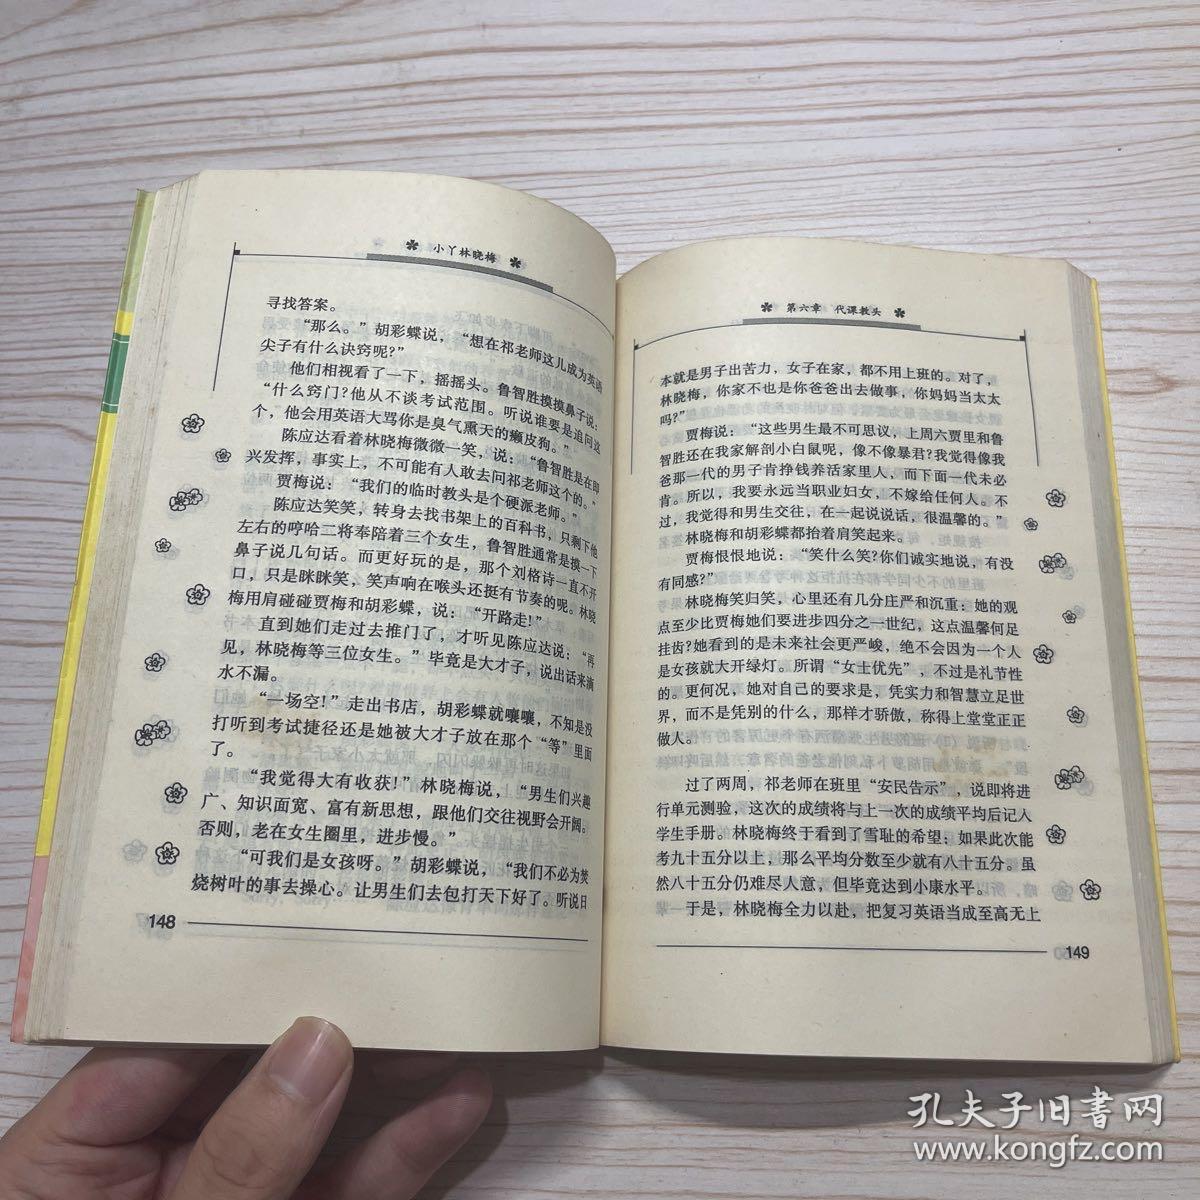 小丫林晓梅
寻找答案。
“那么。”胡彩蝶说，“想在祁老师这儿成为英语
尖子有什么诀窍呢？”
他们相视看了一下，摇摇头。鲁智胜摸摸鼻子说：
“什么窍门？他从不谈考试范围。听说谁要是追问这
个，他会用英语大骂你是臭气熏天的癞皮狗。”
陈应达看着林晓梅微微一笑，说：“鲁智胜是在即
兴发挥，事实上，不可能有人敢去问祁老师这个的。”
贾梅说：“我们的临时教头是个硬派老师。”
陈应达笑笑，转身去找书架上的百科书，只剩下他
左右的哼哈二将奉陪着三个女生，鲁智胜通常是摸一下
鼻子说几句话。而更好玩的是，那个刘格诗一直不开
口，只是眯眯笑，笑声响在喉头还挺有节奏的呢。林晓
梅用肩碰碰贾梅和胡彩蝶，说：“开路走！”
直到她们走过去推门了，才听见陈应达说：“再
见，林晓梅等三位女生。”毕竟是大才子，说出话来滴
水不漏。
“一场空！”走出书店，胡彩蝶就嚷嚷，不知是没
打听到考试捷径还是她被大才子放在那个“等”里面
了。
“我觉得大有收获！”林晓梅说，“男生们兴趣
广、知识面宽、富有新思想，跟他们交往视野会开阔。
否则，老在女生圈里，进步慢。”
“可我们是女孩呀。”胡彩蝶说，“我们不必为焚
烧树叶的事去操心。让男生们去包打天下好了。听说日
148
第六章 代课教头
本就是男子出苦力，女子在家，都不用上班的。对了，
林晓梅，你家不也是你爸爸出去做事，你妈妈当太太
吗？”
贾梅说：“这些男生最不可思议，上周六贾里和鲁
智胜还在我家解剖小白鼠呢，像不像暴君？我觉得像我
爸那一代的男子肯挣钱养活家里人，而下面一代未必
肯。所以，我要永远当职业妇女，不嫁给任何人。不
过，我觉得和男生交往，在一起说说话，很温馨的。”
林晓梅和胡彩蝶都抬着肩笑起来。
贾梅恨恨地说：“笑什么笑？你们诚实地说，有没
有同感？”
林晓梅笑归笑，心里还有几分庄严和沉重：她的观
点至少比贾梅她们要进步四分之一世纪，这点温馨何足
挂齿？她看到的是未来社会更严峻，绝不会因为一个人
是女孩就大开绿灯。所谓“女士优先”，不过是礼节性
的。更何况，她对自己的要求是，凭实力和智慧立足世
界，而不是凭别的什么，那样才骄傲，称得上堂堂正正
做人。
过了两周，祁老师在班里“安民告示”，说即将进
行单元测验，这次的成绩将与上一次的成绩平均后记入
学生手册。林晓梅终于看到了雪耻的希望：如果此次能
考九十五分以上，那么平均分数至少就有八十五分。虽
然八十五分仍难尽人意，但毕竟达到小康水平。
于是，林晓梅全力以赴，把复习英语当成至高无上
149
孔夫子旧书网
www.kongfz.com